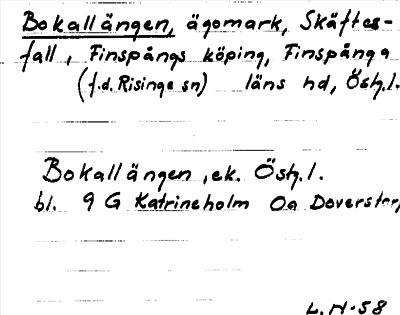 Bokallängen, ägomark, Skäftes-
fall, Finspångs köping, Finspånga
(f.d. Risinge sn) läns hd, Östg.l.
Bokallängen, ek. Östg.l.
bl. 9 G Katrineholm 0a Doverstorp
L.H-58